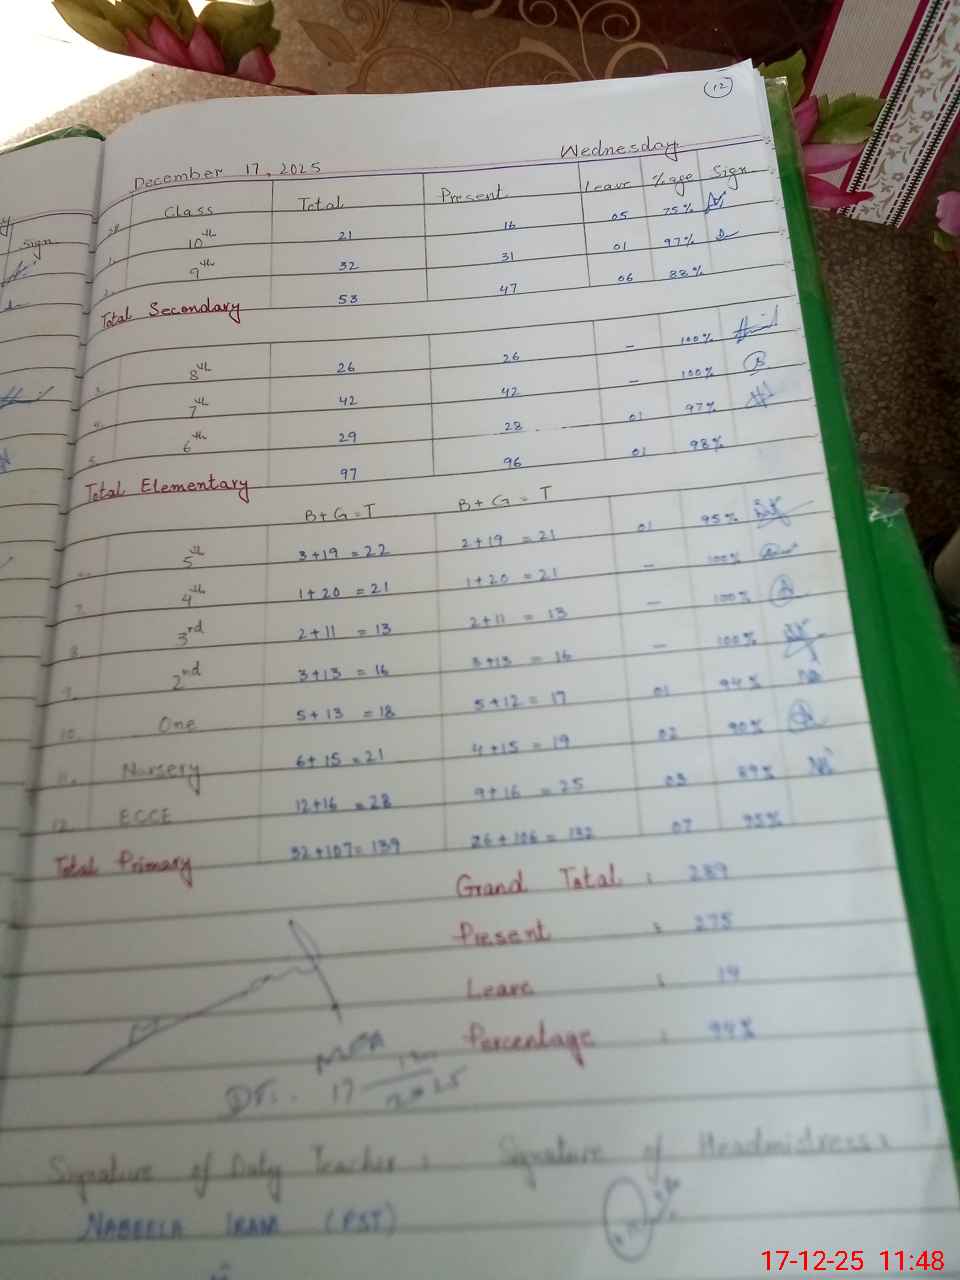 12
December 17, 2025 Wednesday
Sr Class Total Present Leave %age Sign
1. 10th 21 16 05 75%
2. 9th 32 31 01 97%
Total Secondary 53 47 06 88%
3. 8th 26 26 – 100%
4. 7th 42 42 – 100%
5. 6th 29 28 01 97%
Total Elementary 97 96 01 98%
B+G=T B+G=T
5th 3+19=22 2+19=21 01 95%
7. 4th 1+20=21 1+20=21 – 100%
8. 3rd 2+11=13 2+11=13 – 100%
9. 2nd 3+13=16 3+13=16 – 100%
10. One 5+13=18 5+12=17 01 94%
11. Nursery 6+15=21 4+15=19 02 90%
12. ECCE 12+16=28 9+16=25 03 89%
Total Primary 32+107=139 26+106=132 07 95%
Grand Total : 289
Present : 275
Leave : 14
Percentage : 94%
MEA
DT:. 17 12 2025
Signature of Duty Teacher: Signature of Headmistress:
NABEELA IRAM (PST)
sign
17-12-25 11:48